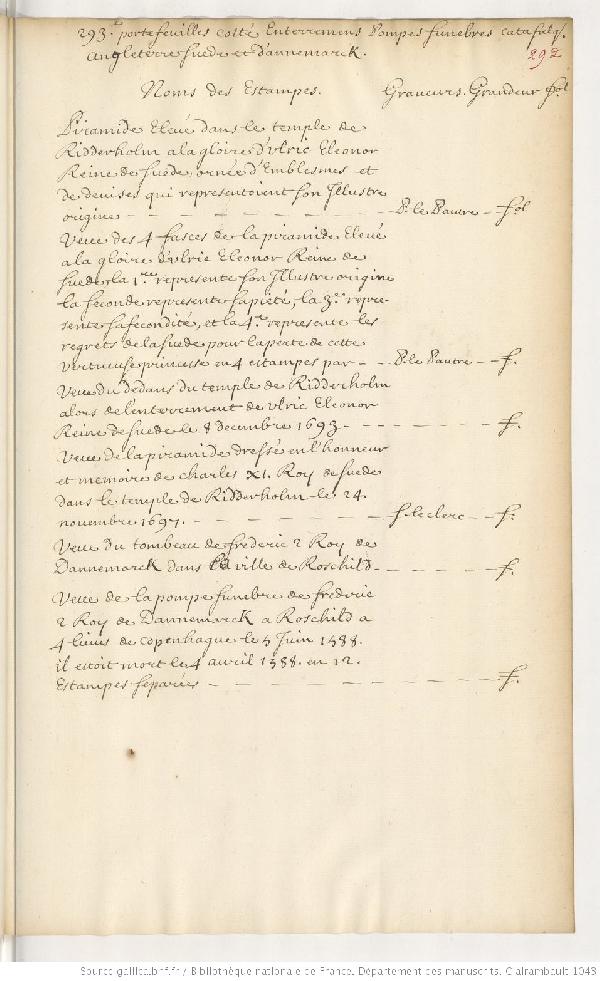 293.e portefeuilles cotté Enterremens Pompes funebres catafalq.
angleterre suede et Dannemarck.
292
Noms des Estampes. Graveurs. Grandeur fol
Piramide Elevé dans le temple de
Ridderholm a la gloire d'vlric Eleonor
Reine de suede ornée d'Emblesmes et
de devises qui representoient son Illustre
origine — — — — — — — P. le Pautre — fol
Veue des 4 fasces de la piramide Elevé
a la gloire d'vlric Eleonor Reine de
suede, la 1.re represente son Illustre origine
la seconde represente sa pieté, la 3.e repre-
sente sa fecondité, et la 4.e represente les
regrets de la suede pour la perte de cette
vertueuse princesse en 4 estampes par — — P. le Pautre — — f.
Veue du dedans du temple de Ridderholm
alors de l'enterrement de vlric Eleonor
Reine de suede le 8 Decembre 1693 — — — — — — — f.
Veue de la piramide dressé en l'honneur
et memoire de charles XI. Roy de suede
dans le temple de Ridderholm le 24.
novembre 1697. — — — — — — — S. le clerc — — f.
Veue du tombeau de frederic 2 Roy de
Dannemarck dans la ville de Roschild — — — — — — f.
Veue de la pompe funebre de frederic
2 Roy de Dannemarck a Roschild a
4 lieues de copenhague le 5 Juin 1588.
il estoit mort le 4 avril 1588. en 12.
Estampes separées — — — — — — — — — — f.
Source gallica.bnf.fr / Bibliothèque nationale de France. Département des manuscrits. Clairambault 1043